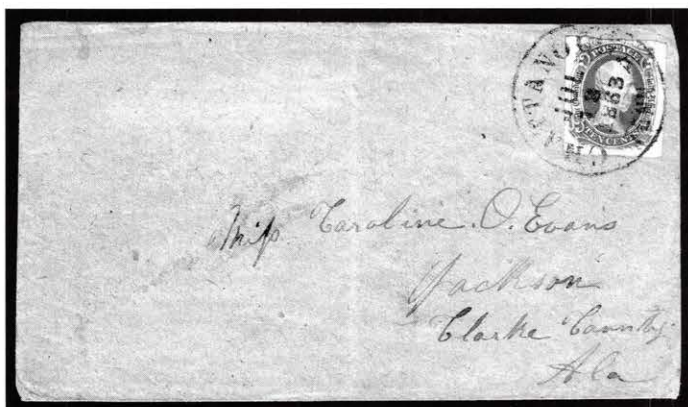 CHATTANOOGA
JUL
18
1863
POSTAGE
TEN CENTS
Miss Caroline. O. Evans
Jackson
Clarke County.
Ala